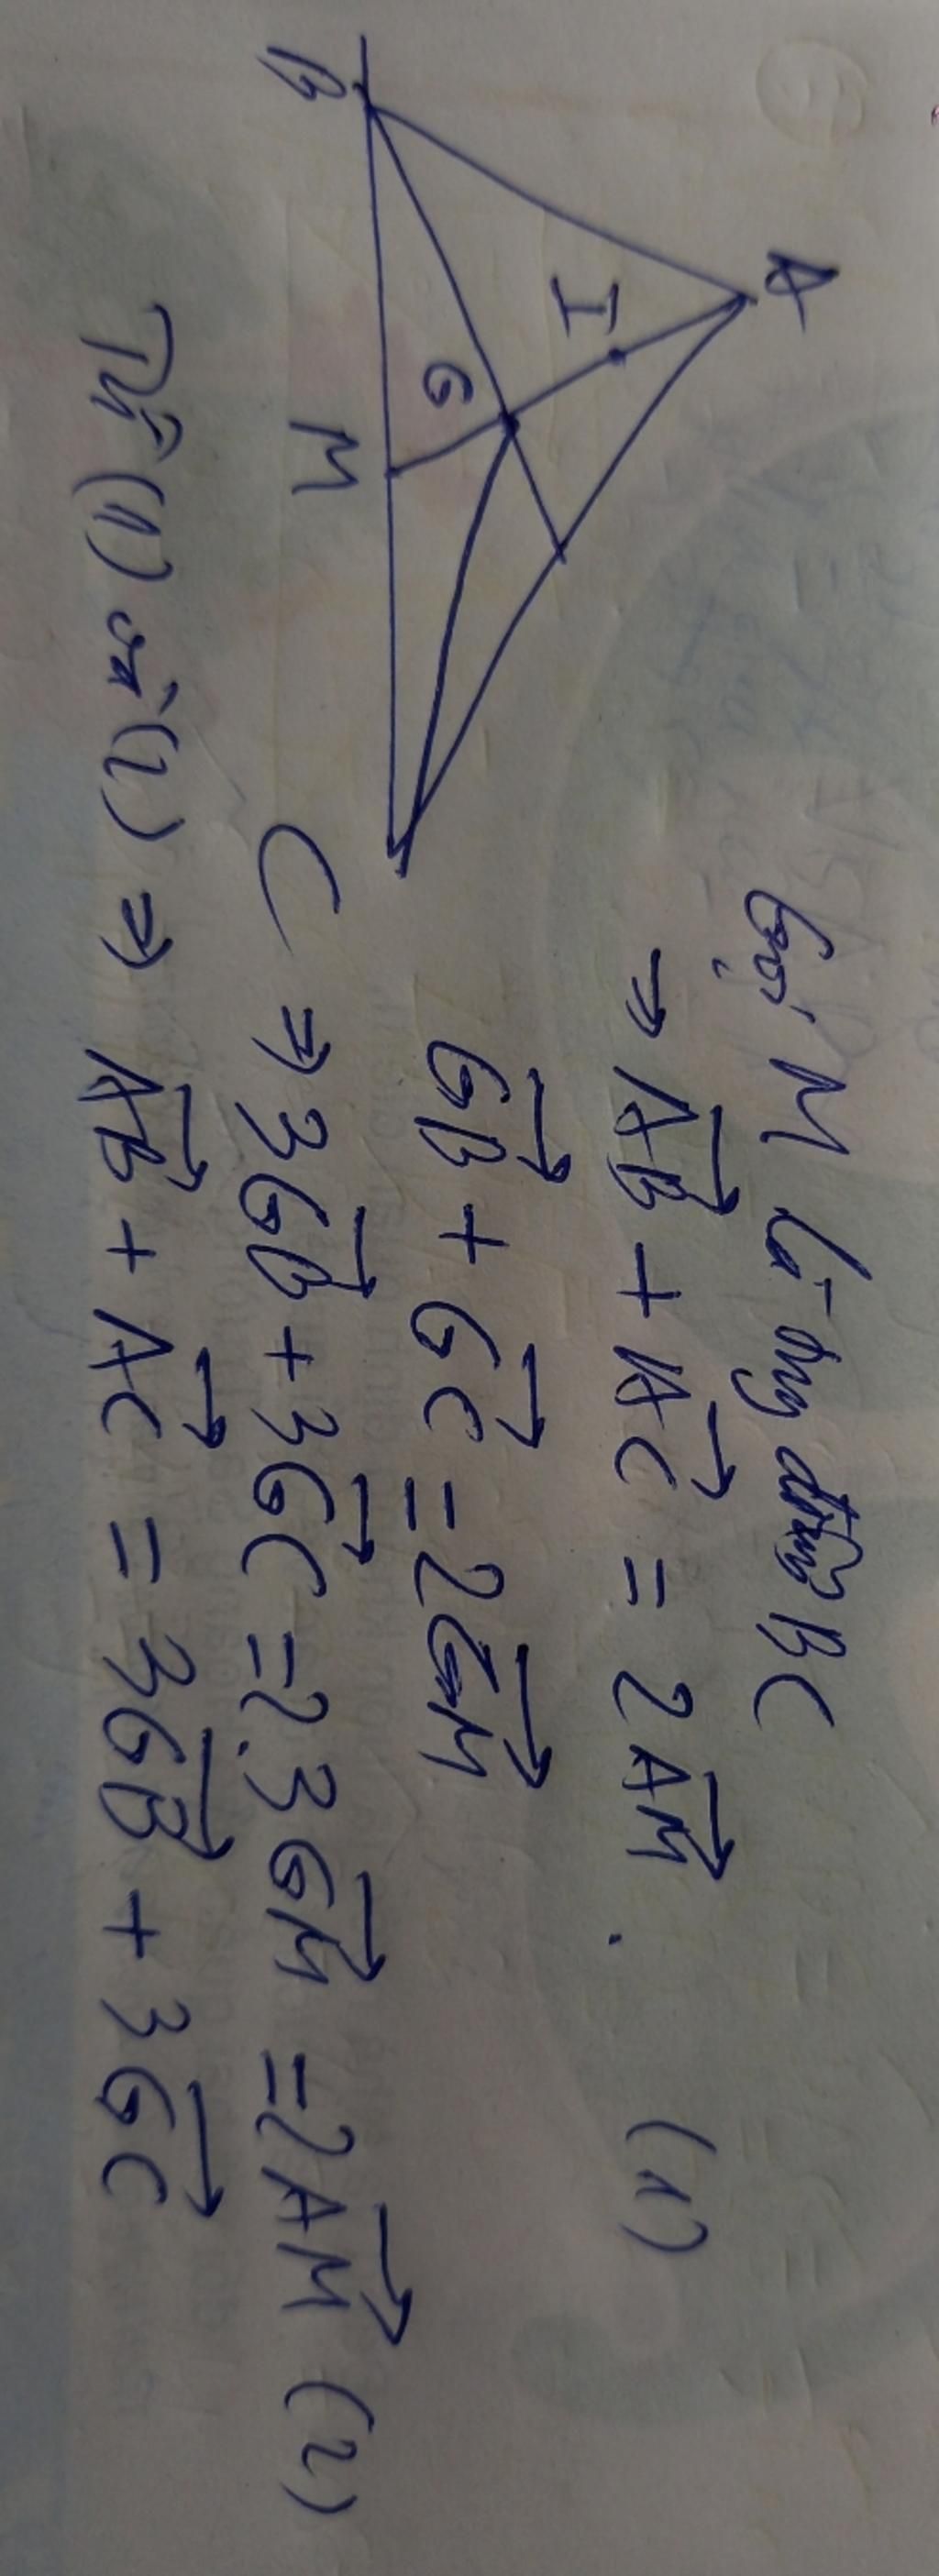 A
I
G
B
M
C
Gọi M là trung điểm BC
⇒ \overrightarrow{AB} + \overrightarrow{AC} = 2\overrightarrow{AM}. (1)
\overrightarrow{GB} + \overrightarrow{GC} = 2\overrightarrow{GM}
⇒ 3\overrightarrow{GB} + 3\overrightarrow{GC} = 2.3\overrightarrow{GM} = 2\overrightarrow{AM} (2)
Từ (1) và (2) ⇒ \overrightarrow{AB} + \overrightarrow{AC} = 3\overrightarrow{GB} + 3\overrightarrow{GC}